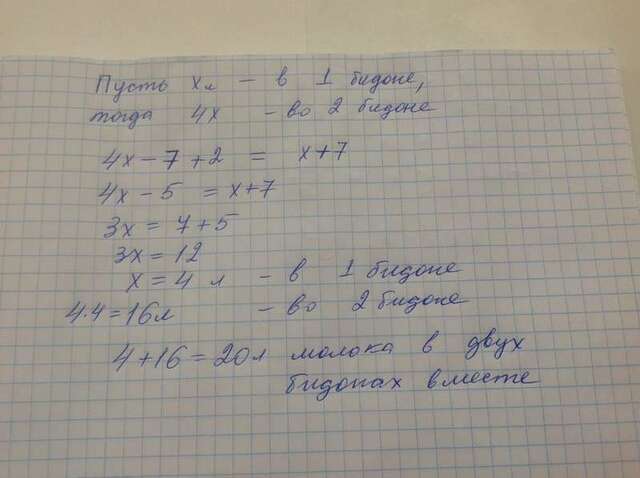 Пусть x л – в 1 бидоне,
тогда 4x – во 2 бидоне
4x – 7 + 2 = x + 7
4x – 5 = x + 7
3x = 7 + 5
3x = 12
x = 4 л – в 1 бидоне
4·4 = 16 л – во 2 бидоне
4 + 16 = 20 л молока в двух
бидонах вместе